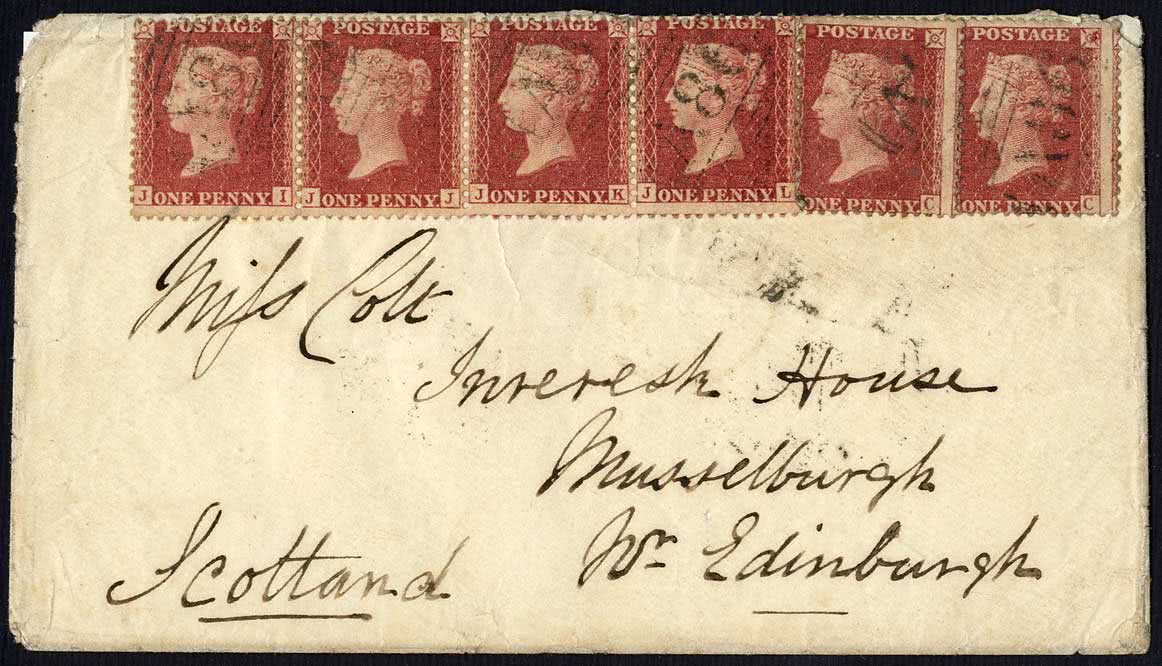 POSTAGE POSTAGE POSTAGE POSTAGE POSTAGE POSTAGE
J ONE PENNY. I J ONE PENNY. J J ONE PENNY. K J ONE PENNY. L ONE PENNY. C ONE PENNY. C
Miss Colt
Inveresk House
Musselburgh
Nr. Edinburgh
Scotland